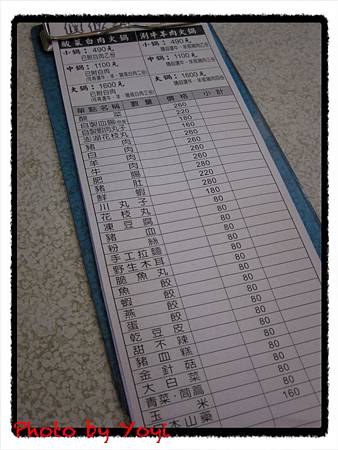 酸菜白肉火鍋 涮牛羊肉火鍋
小鍋：490元 小鍋：490元
已附白肉乙份
中鍋：1100元 中鍋：1100元
已附白肉
大鍋：1600元 大鍋：1600元
已附白肉
單點名稱 數量 價格 小計
酸菜 260
自製血腸 220
自製蝦肉丸子 180
澎湖花枝丸 160
豬肉 260
白肉 260
羊肉 260
牛肉 280
肥腸 220
豬肚 280
鮮蝦 180
川丸子 80
花枝丸
凍豆腐 80
豬血 80
粉絲 80
手工拉麵 80
野生木耳 80
脆魚丸 80
魚餃 80
蝦餃 80
燕餃 80
蛋餃 80
乾豆皮 80
甜不辣 80
豬血糕 80
金針菇 80
大白菜 80
青菜·茼蒿 80
玉米 80
木山藥 160
Photo by Yoyi